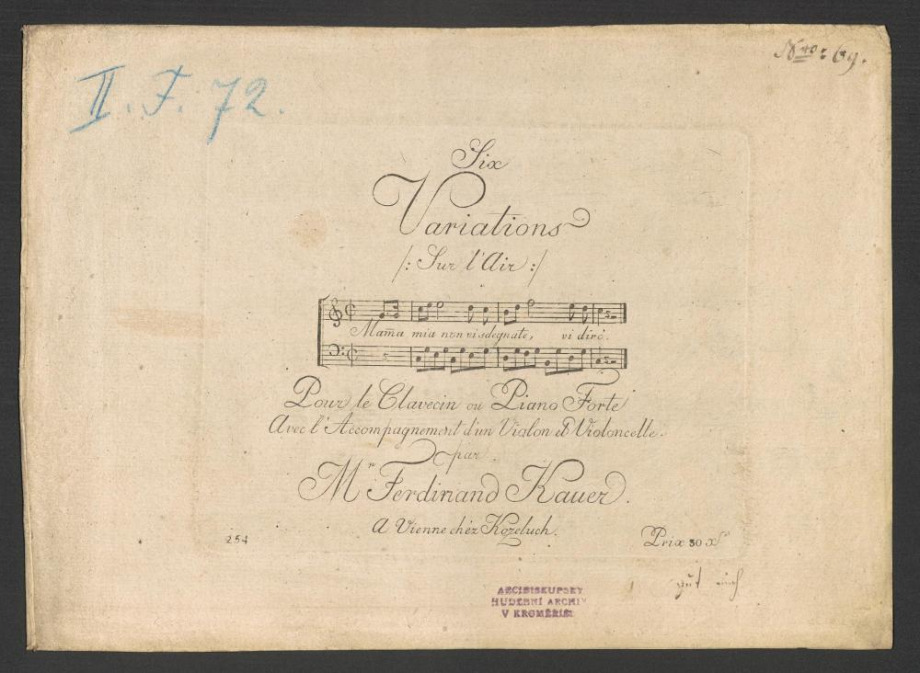 II. F. 72.
Six
Variations
/: Sur l'Air :/
Mam̄a mia non vi sdegnate, vi dirò.
Pour le Clavecin ou Piano Forte
Avec l'Accompagnement d'un Violon et Violoncelle.
par
Mr Ferdinand Kauer.
A Vienne chéz Kozeluch.
254
Prix 30 x
ARCIBISKUPSKÝ
HUDEBNÍ ARCHIV
V KROMĚŘÍŽI